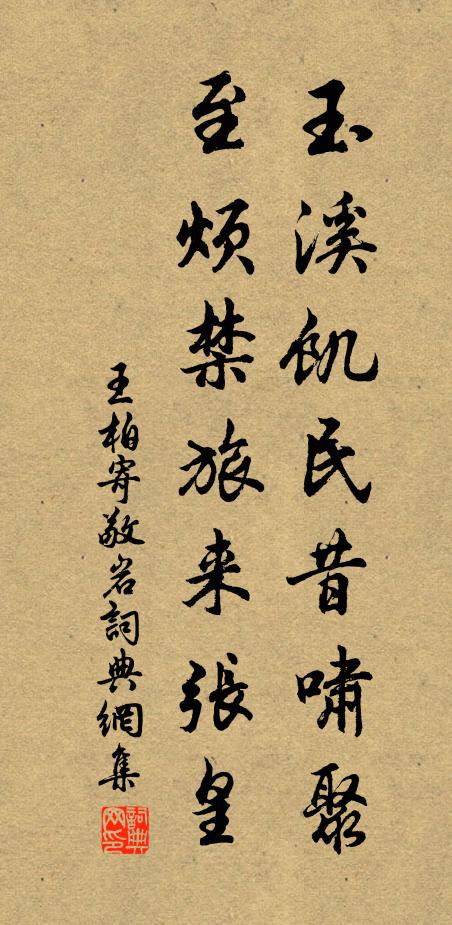 玉溪飢民昔嘯聚
至煩禁旅来張皇
王柏寄敬岩詞典網集
詞典網印